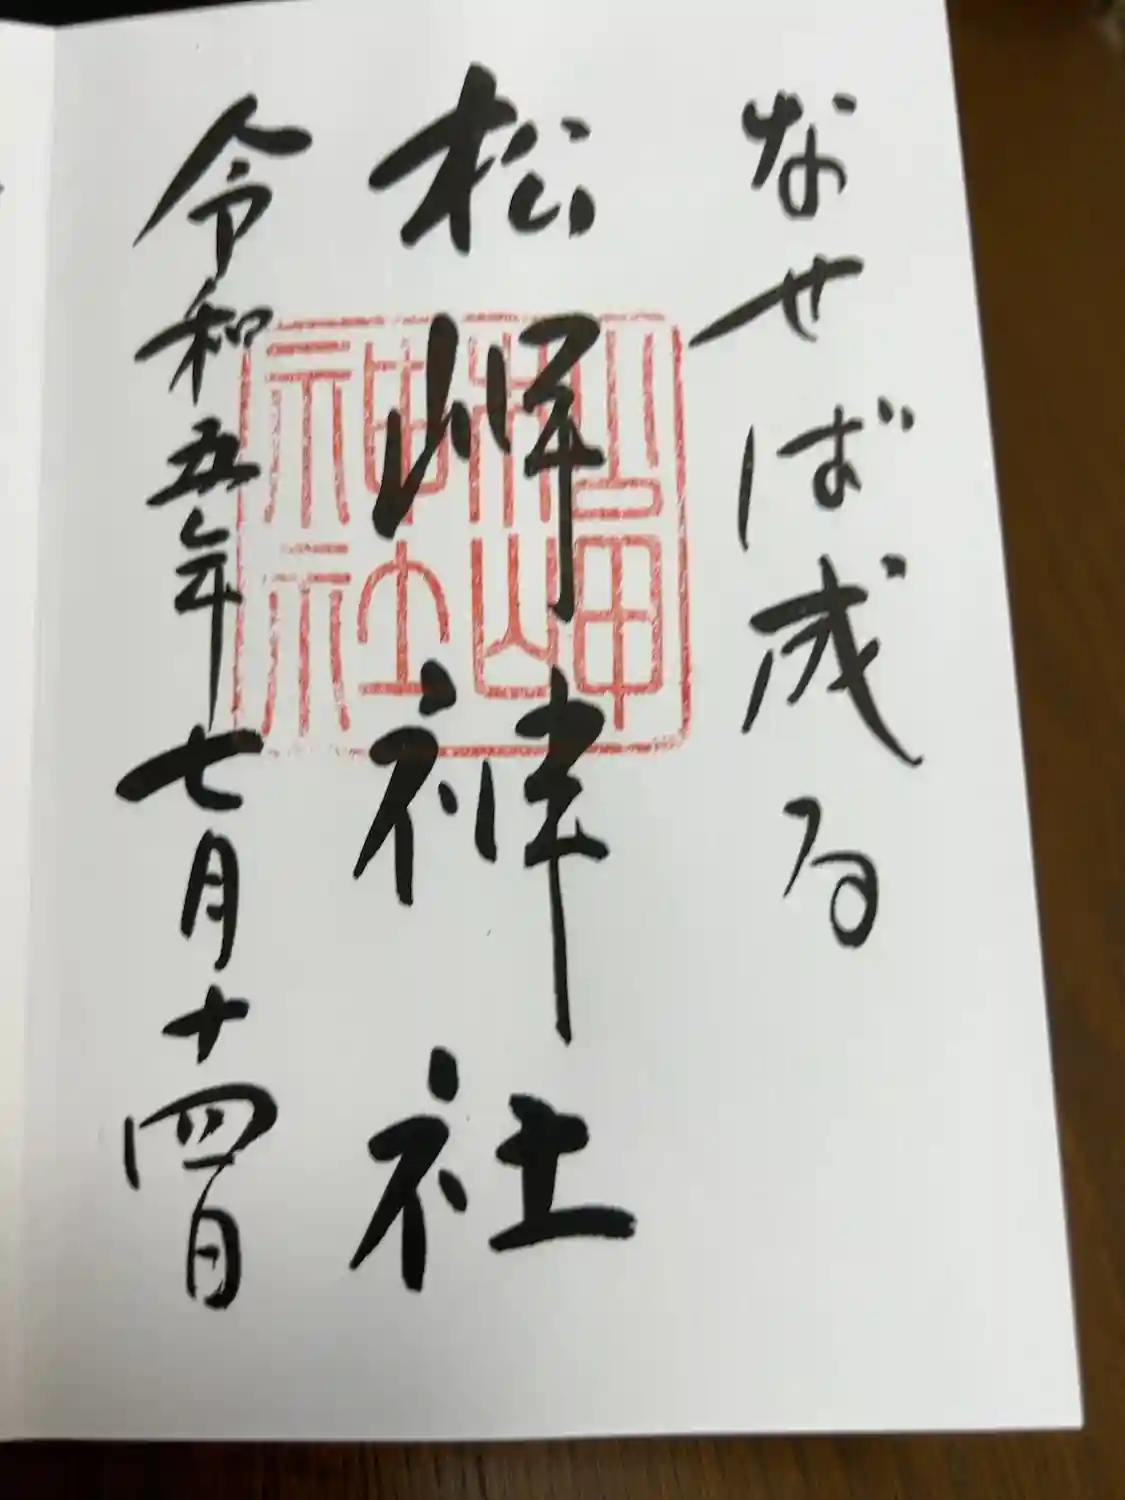 なせば成る
松岬神社
令和五年七月十四日
松岬神社